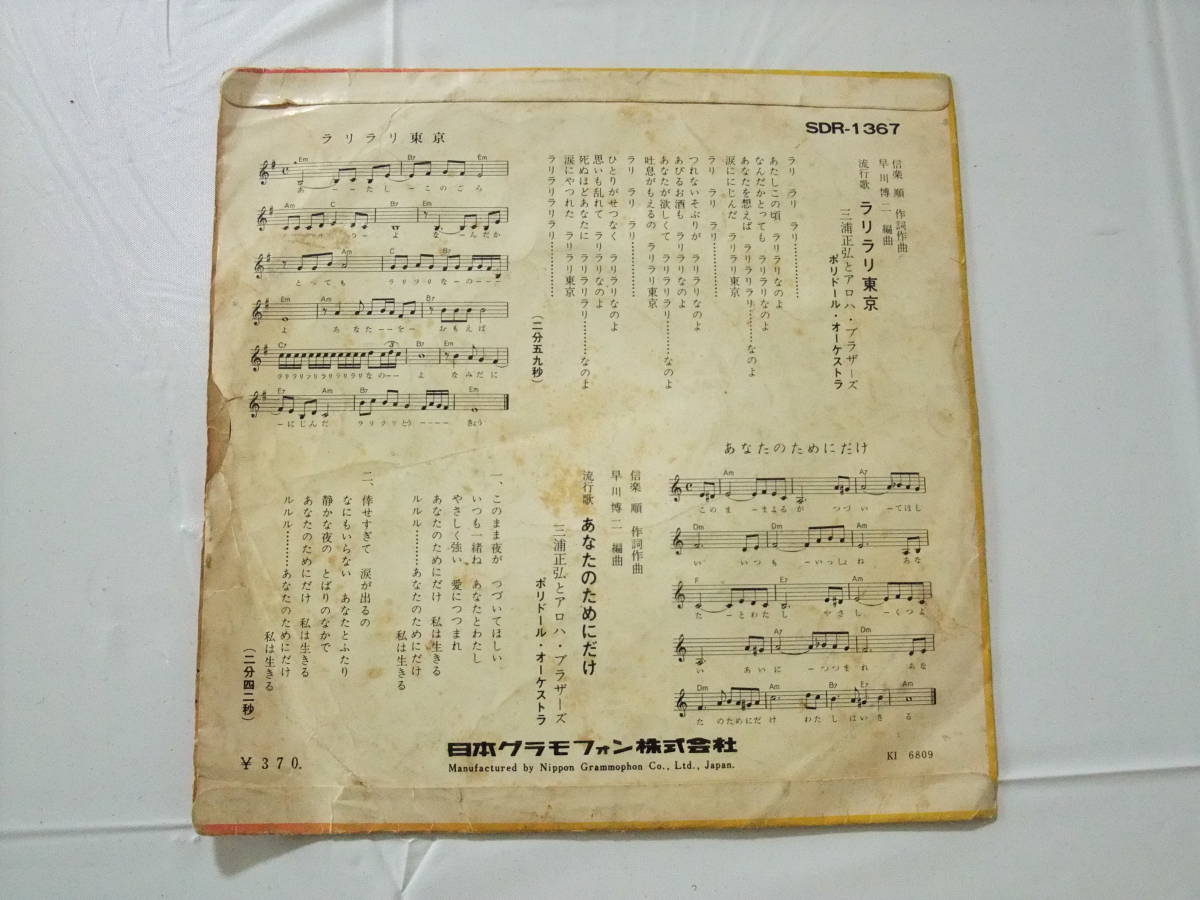 SDR-1367
信楽 順 作詞作曲
早川博二 編曲
流行歌 ラリラリ東京
三浦正弘とアロハ・ブラザーズ
ポリドール・オーケストラ
ラリ ラリ ラリ…………
あたしこの頃 ラリラリなのよ
なんだかとっても ラリラリなのよ
あなたを想えば ラリラリラリ………なのよ
涙ににじんだ ラリラリ東京
ラリ ラリ ラリ…………
つれないそぶりが ラリラリなのよ
あびるお酒も ラリラリなのよ
あなたが欲しくて ラリラリラリ………なのよ
吐息がもえるの ラリラリ東京
ラリ ラリ ラリ…………
ひとりがせつなく ラリラリなのよ
思いも乱れて ラリラリなのよ
死ぬほどあなたに ラリラリラリ………なのよ
涙にやつれた ラリラリ東京
ラリラリラリラリ…………
(二分五九秒)
ラリラリ東京
Em B7 Em
あーーたしーこのごろ
Am C B7 Em
よ なーんだか
Am C B7
とっても ラリラリなのーーー
Em Am B7
よ あなたーーをー おもえば
C7 B7 Em
ラリラリラリラリラリラリなのーー よ なみだに
E7 Am B7 Em
ーにじんだ ラリラリとうーーーー きょう
あなたのためにだけ
Am A7
このまーまよるが つづいーてほし
Dm Am
い いつもーいっしょね あな
F E7 Am
たーとわたし やさしーくつよ
A7 Dm
い あいにーつつまれ あな
Dm Am B7 E7 Am
たのためにだけ わたしはいきる
信楽 順 作詞作曲
早川博二 編曲
流行歌 あなたのためにだけ
三浦正弘とアロハ・ブラザーズ
ポリドール・オーケストラ
一、このまま夜が つづいてほしい
いつも一緒ね あなたとわたし
やさしく強い 愛につつまれ
あなたのためにだけ 私は生きる
ルルル………あなたのためにだけ
私は生きる
二、倖せすぎて 涙が出るの
なにもいらない あなたとふたり
静かな夜の とばりのなかで
あなたのためにだけ 私は生きる
ルルル………あなたのためにだけ
私は生きる
(二分四二秒)
¥370.
日本グラモフォン株式会社
Manufactured by Nippon Grammophon Co., Ltd., Japan.
KI 6809